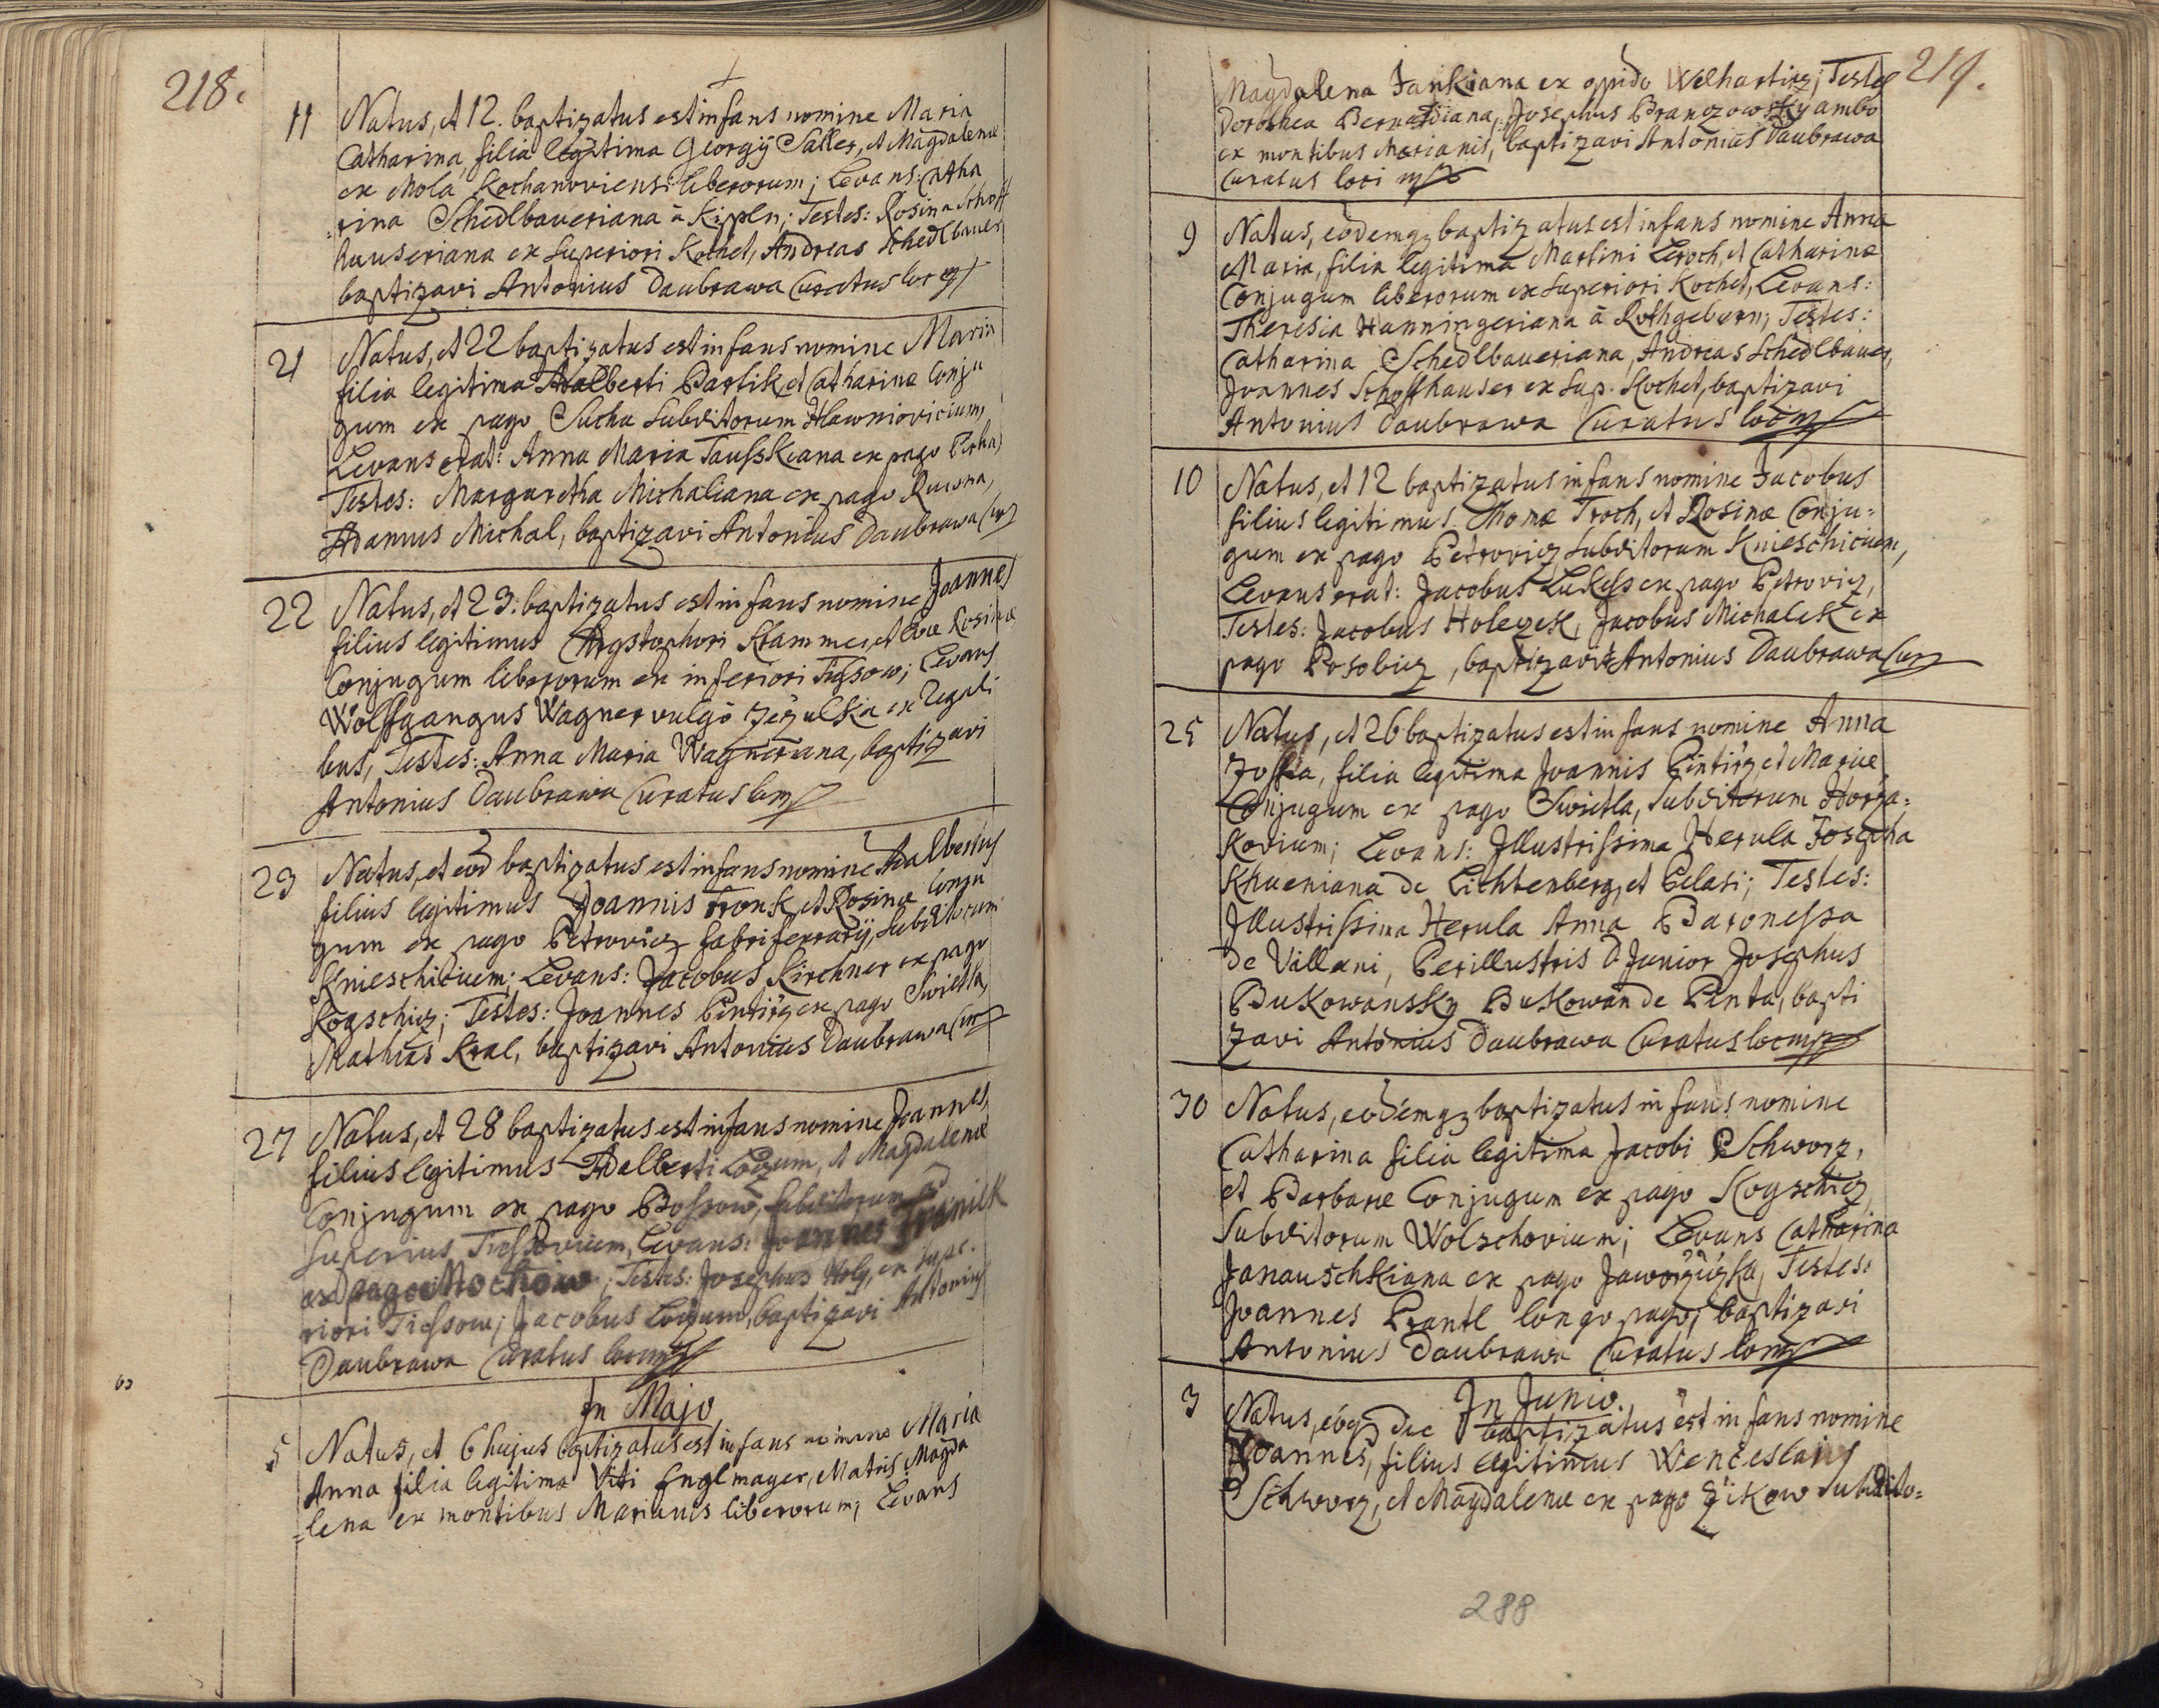 218.
11 Natus, et 12. baptizatus est infans nomine Maria
Catharina, filia legitima Georgij Saller, et Magdalenæ
ex Mola Kochanoviensi liberorum; Levans: Catha
rina Schedlbaueriana à Kippln; Testes: Rosina Schoff
hauseriana ex superiori Kochet, Andreas Schedlbauer
baptizavi Antonius Daubrawa Curatus loci
21 Natus, et 22 baptizatus est infans nomine Maria
filia legitima Adalberti Bartik et Catharinæ Conju
gum ex pago Sucha subditorum Hlawniovicium,
Levans erat: Anna Maria Tausskiana ex pago
Testes: Margaretha Michaliana ex pago Ruwna,
Adamus Michal, baptizavi Antonius Daubrawa Cur
22 Natus, et 23: baptizatus est infans nomine Joannes
filius legitimus Chrystophori Stammer, et Evæ Rosinæ
Conjugum liberorum ex inferiori Tiessow; Levans
Wolffgangus Wagner vulgò Zezulka ex
bus, Testes: Anna Maria Wagneriana, baptizavi
Antonius Daubrawa Curatus loci
23 Natus, et eod baptizatus est infans nomine Adalbertus
filius legitimus Joannis Fronk, et Rosinæ Conju
gum ex pago Petrovicz fabri ferrarij, subditorum
Knieschicium; Levans: Jacobus Kirchner ex pago
Kogschicz; Testes: Joannes Pintirz ex pago Swietla,
Mathias Kral, baptizavi Antonius Daubrawa Cur
27 Natus, et 28 baptizatus est infans nomine Joannes,
filius legitimus Adalberti Lozum, et Magdalenæ
Conjugum ex pago Bossow, subditorum ad
superius Tiessovium, Levans: Joannes Franiek
ex pago Mochow; Testes: Josephus Holy, ex supe-
riori Tiessow, Jacobus Lozum, baptizavi Antonius
Daubrawa Curatus loci
In Majo
5 Natus, et 6 hujus baptizatus est infans nomine Maria
Anna filia legitima Viti Englmayer, Matris Magda
=lena ex montibus Marianis liberorum, Levans
219.
Magdalena Jankiana ex oppido Welhartitz; Testes
Dorothea Bernardiana, Josephus Pranczowsky ambo
ex montibus Marianis, baptizavi Antonius Daubrawa
Curatus loci
9 Natus, eodemq baptizatus est infans nomine Anna
Maria, filia legitima Martini Leroch, et Catharinæ
Conjugum liberorum ex superiori Kochet, Levans:
Theresia Hanningeriana à Rothgebern, Testes:
Catharina Schedlbaueriana, Andreas Schedlbauer,
Joannes Schoffhauser ex sup. Kochet, baptizavi
Antonius Daubrawa Curatus loci
10 Natus, et 12 baptizatus infans nomine Jacobus
filius legitimus Thomæ Troch, et Rosinæ Conju=
gum ex pago Petrovicz subditorum Knieschicium,
Levans erat: Jacobus Lukess ex pago Petrovicz,
Testes: Jacobus Holeczek, Jacobus Michalek ex
pago Posobicz, baptizavi Antonius Daubrawa Cur
25 Natus, et 26 baptizatus est infans nomine Anna
Zoffia, filia legitima Joannis Pintirz, et Mariæ
Conjugum ex pago Swietla, subditorum Horza=
Kovium; Levans: Illustrissima Herula Josepha
Khueniana de Lichtenberg, et Belasi; Testes:
Illustrissima Herula Anna Baronessa
de Villani, Perillustris D Junior Josephus
Bukowansky Bukowan de Pinta, bapti
zavi Antonius Daubrawa Curatus loci
30 Natus, eodemq baptizatus infans nomine
Catharina filia legitima Jacobi Schworz,
et Barbaræ Conjugum ex pago Kogschicz
subditorum Wolschovium; Levans Catharina
Janauschkiana ex pago Testes:
Joannes Prantl longo pago; baptizavi
Antonius Daubrawa Curatus loci
In Junio.
3 Natus, eoq die baptizatus est infans nomine
Joannes, filius legitimus Wenceslai
Schworz, et Magdalenæ ex pago Zikow subdito=
288